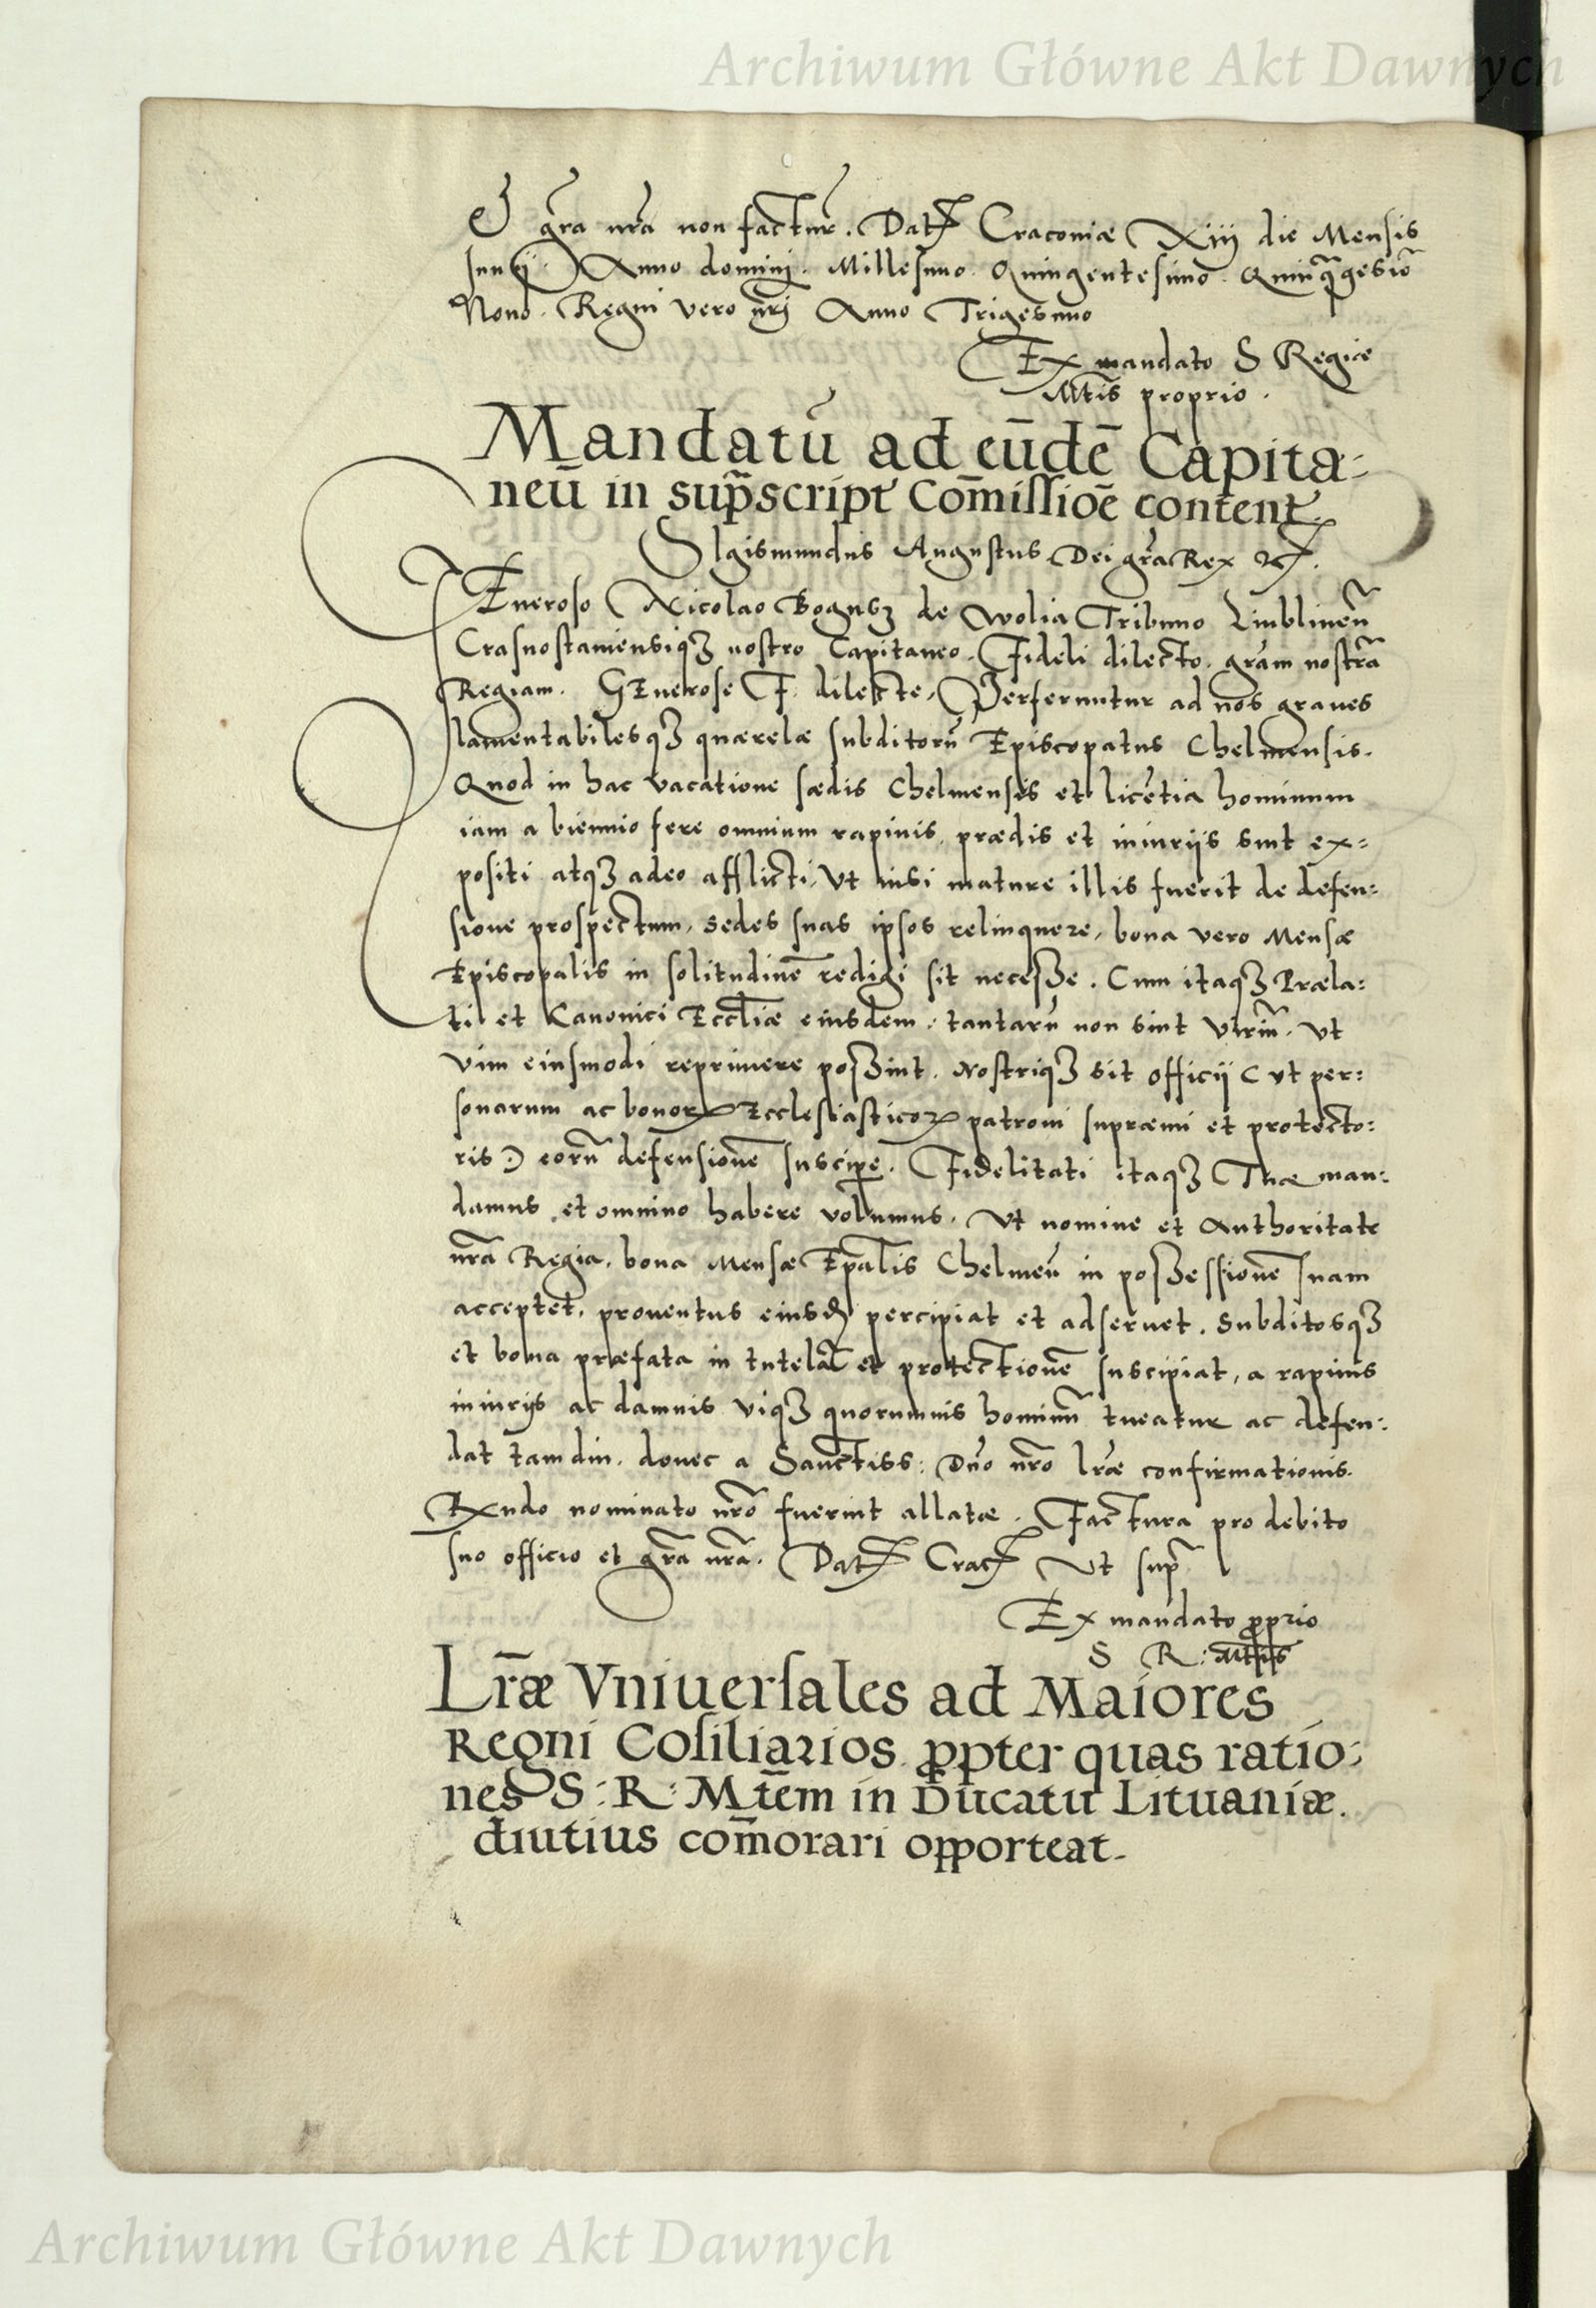 Archiwum Główne Akt Dawnych
Et gra̅ nra̅ non factur̅. Datꝭ Cracoviæ XIII die Mensis
Junij. Anno domini. Millesimo. Quingentesimo. Quinq̅gesio̅
Nono. Regni vero nr̅j Anno Trigesimo
Ex mandato S Regiæ
Mt̅is proprio.
Mandatū ad eūdē Capita-
neū in supr̅script̅ Com̅issioē content̅ꝭ
SIgismundus Augustus Dei gr̅a Rex etc̅.
GEneroso Nicolao Bogusz de Wolia Tribuno Liublinen̅
Crasnostaviensiqꝫ nostro Capitaneo. Fideli dilecto. gr̅am nostra̅
Regiam. GEnerose F. dilecte, Perferuntur ad nos graves
lamentabilesqꝫ quærelæ subditorū Episcopatus Chelmensis.
Quod in hac vacatione sædis Chelmensis et lice̅tia hominum
iam a biennio fere omnium rapinis, prædis et iniuriis sint ex=
positi atqꝫ adeo afflicti, Vt nisi mature illis fuerit de defen=
sione prospectum, sedes suas ipsos relinquere, bona vero Mensæ
Episcopalis in solitudine̅ redigi sit necesse. Cum itaqꝫ Præla=
ti et Kanonici Eccl̅iæ eiusdem, tantarū non sint viriu̅. Vt
vim eiusmodi reprimere possint. Nostriqꝫ sit officij ( vt per=
sonarum ac bonorꝝ Ecclesiasticoꝝ patroni supræmi et protecto=
ris ) eorū defensione̅ suscipe̅. Fidelitati itaqꝫ Tuæ man=
damus, et omnino habere volumus. Vt nomine et Authoritate
nr̅a Regia. bona Mensæ Ep̅alis Chelmen̅ in possessione̅ suam
acceptet, proventus eiusd̅ percipiat et adservet. Subditosqꝫ
et bona præfata in tutela̅ et protectione̅ suscipiat, a rapinis
iniurijs ac damnis viqꝫ quorumvis hominu̅ tueatur ac defen=
dat tamdiu. donec a Sanctiss: Dn̅o nr̅o lr̅æ confirmationis.
Rx̅ndo nominato nr̅o fuerint allatæ. Factura pro debito
suo officio et gr̅a nr̅a. Datꝭ Cracꝭ Vt supr̅
Ex mandato ꝓprio
S R: Mt̅tis
Lr̅æ Vniuersales ad Maiores
Regni Cosiliarios ꝓpter quas ratio=
nes S: R: Mt̅em in Ducatu Lituaniæ.
diutius com̅orari opporteat.
Archiwum Główne Akt Dawnych